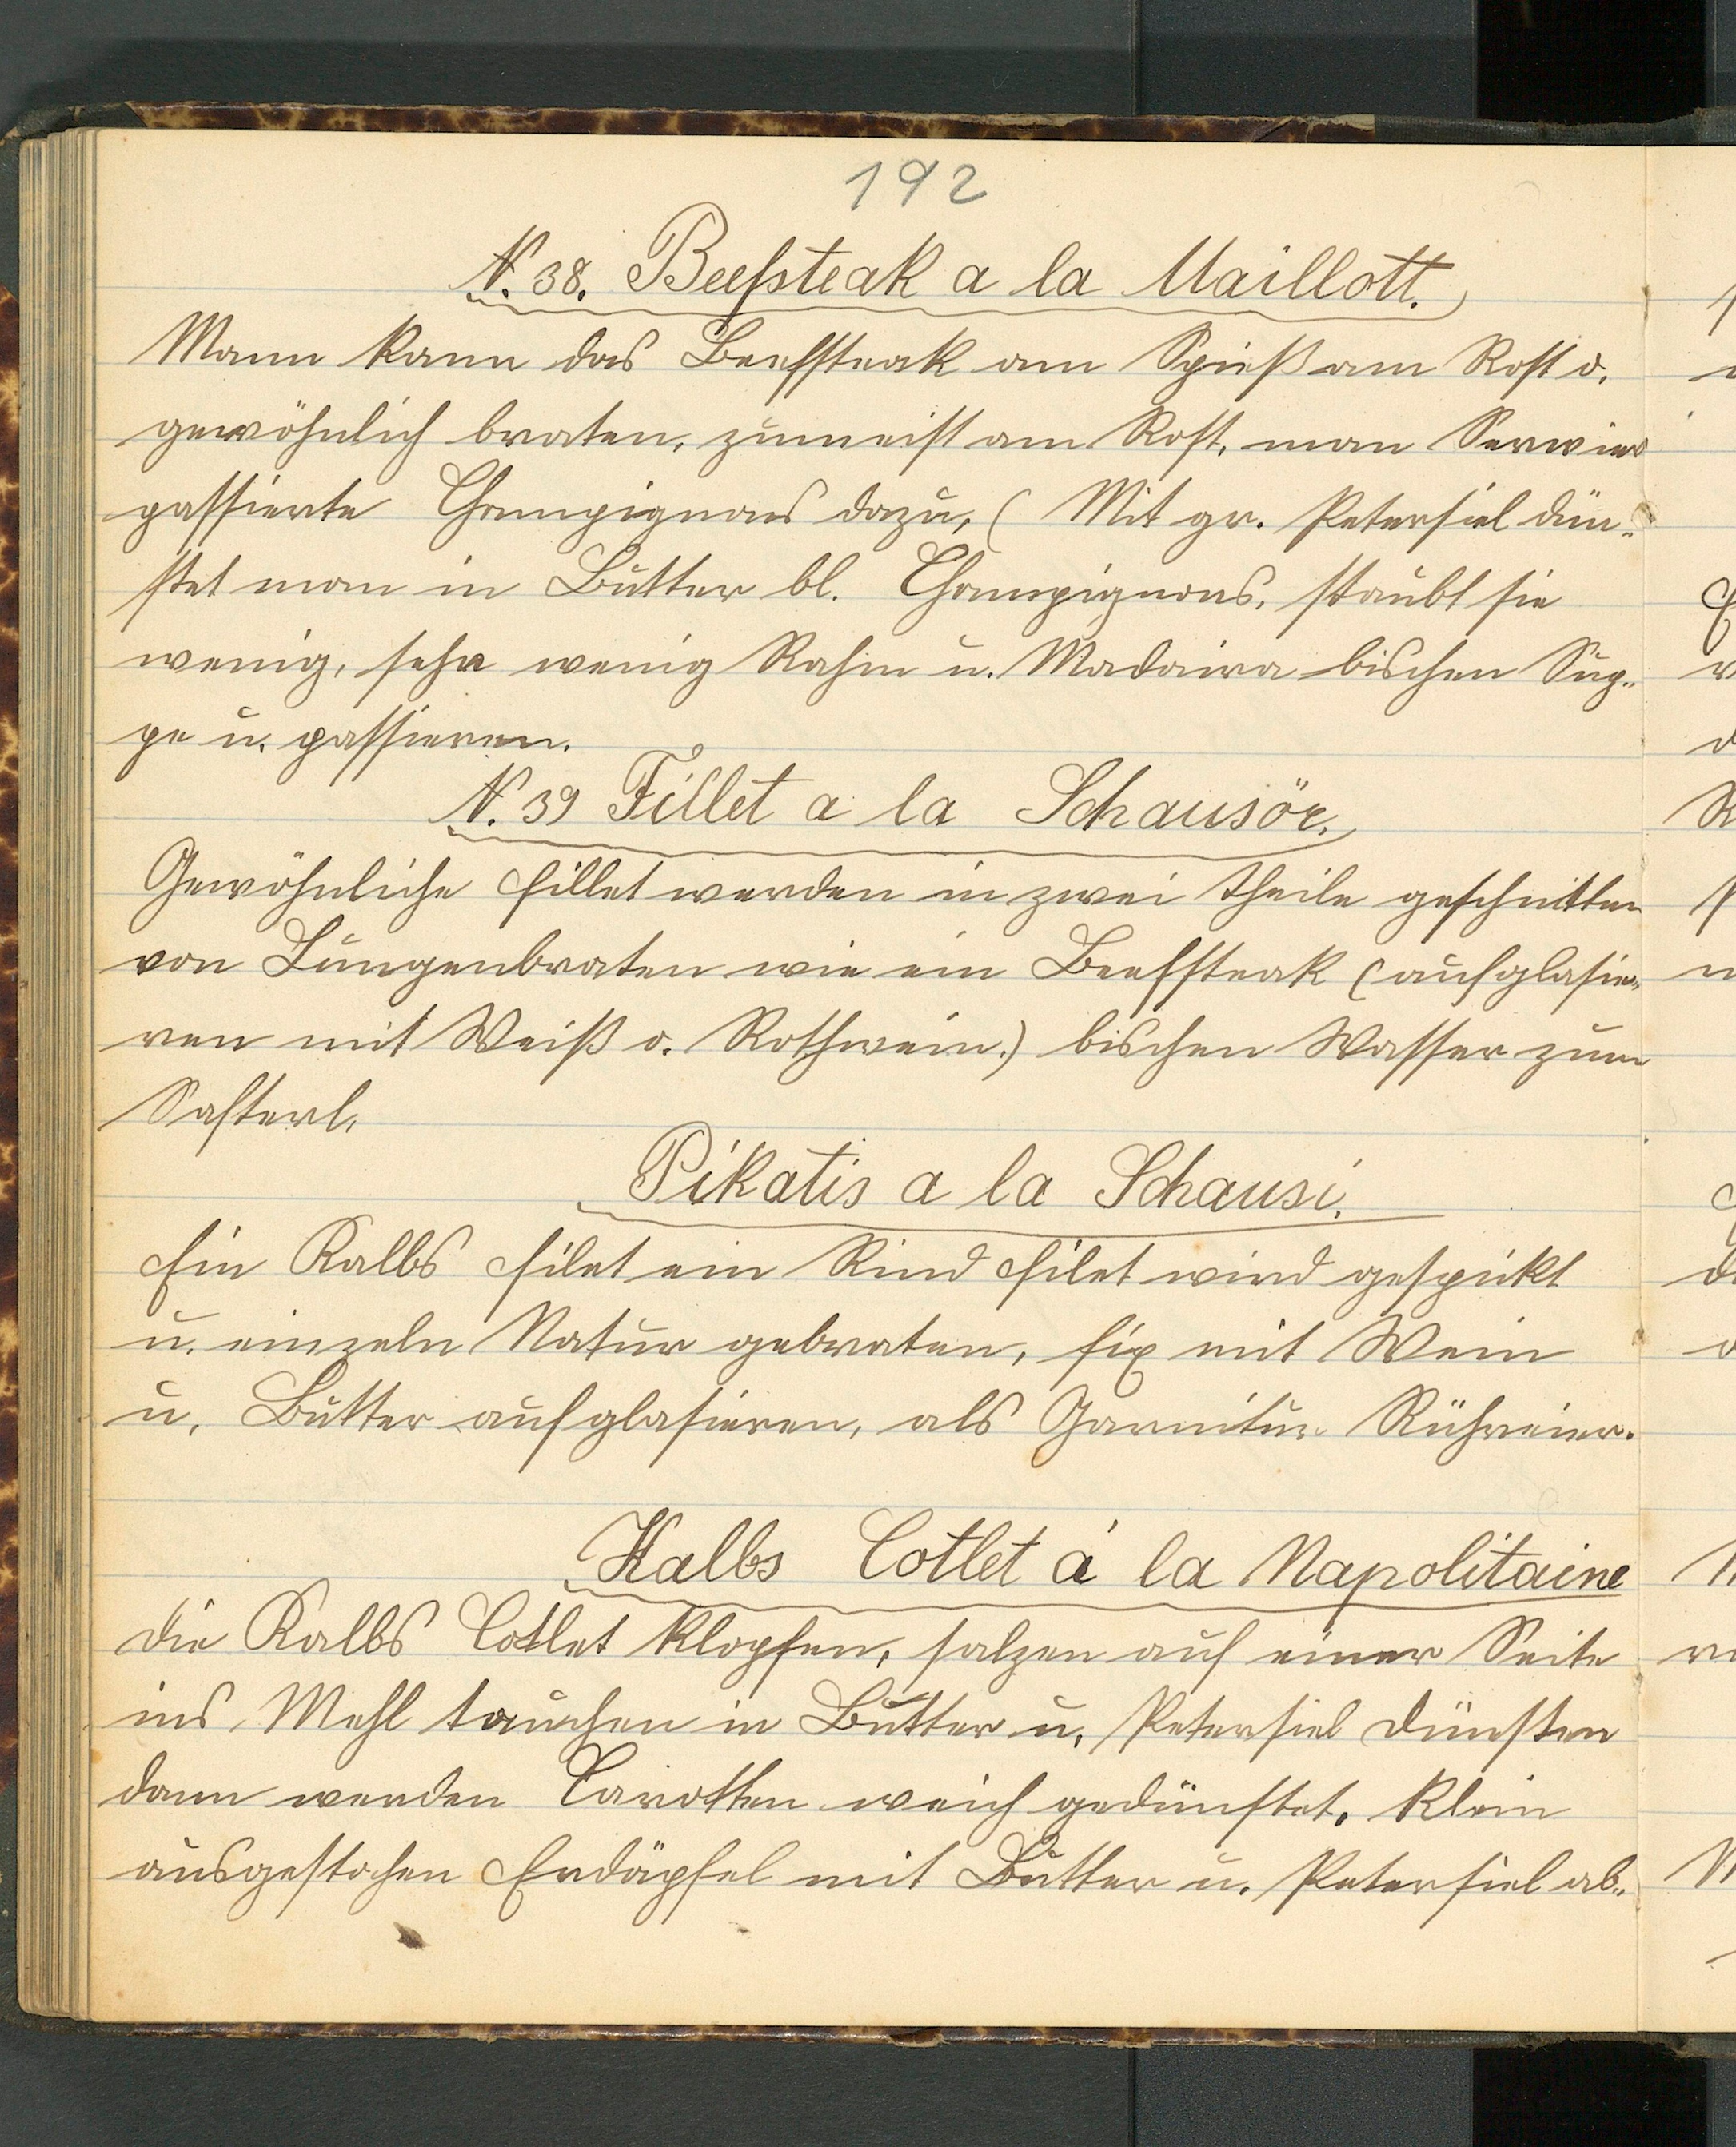 192
N. 38. Beefsteak a la Maillott.
Mann kann das Beefsteak am Spieß am Rost o.
gewöhnlich braten, zumeist am Rost, man Servier
passierte Champignons dazu, ( Mit gr. Petersiel dün-
stet man in Butter bl. Champignons, staubt sie
wenig, sehr wenig Rahm u. Madaira bischen Sup-
pe u. passieren.
N. 39 Fillet a la Schausör.
Gewöhnliche Fillet werden in zwei Theile geschnitten
von Lungenbraten wie ein Beefsteak (aufglasie-
ren mit Weiß o. Rothwein.) bischen Wasser zum
Safterl.
Pikatis a la Schausi.
Ein Kalbs Filet ein Rind Filet wird gespickt
u. einzeln Natur gebraten, fix mit Wein
u. Butter aufglasieren, als Garnitur Rühreier.
Kalbs Cotlet á la Napolitaine
Die Kalbs Cotlet klopfen, salzen auf einer Seite
ins Mehl tauchen in Butter u. Petersiel dünsten
dann werden Carotten weich gedünstet, klein
ausgestochen Erdäpfel mit Butter u. Petersiel ab-